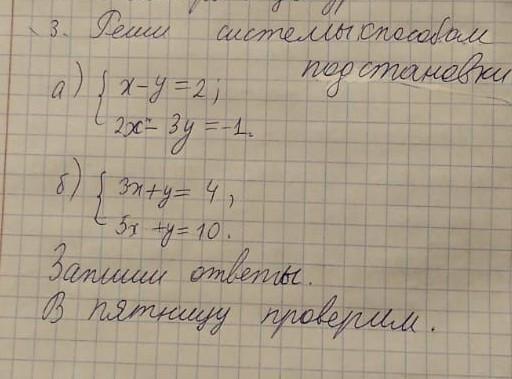 3. Реши системы способом
подстановки
а) { x-y=2,
2x-3y=-1.
б) { 3x+y=4,
5x+y=10.
Запиши ответы.
В пятницу проверим.